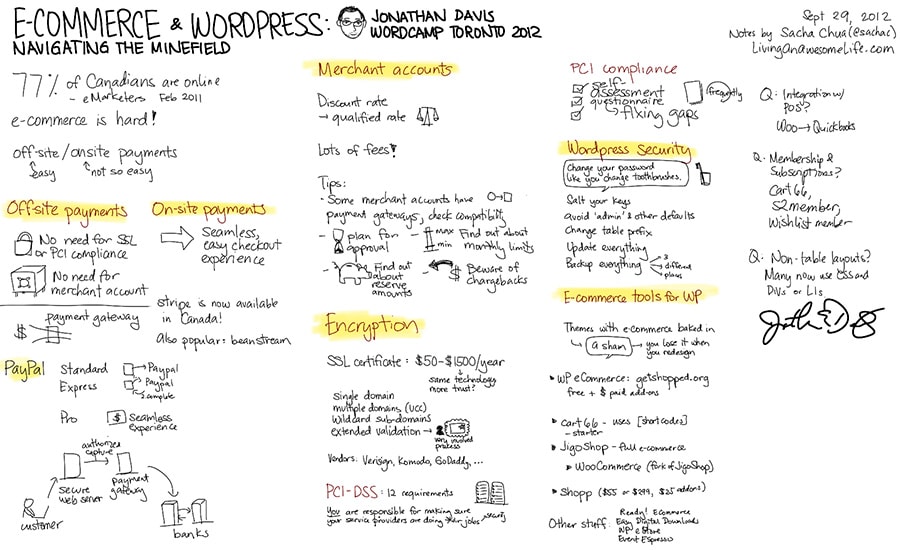 E-COMMERCE & WORDPRESS:
NAVIGATING THE MINEFIELD
JONATHAN DAVIS
WORDCAMP TORONTO 2012
Sept 29, 2012
Notes by Sacha Chua (@sachac)
LivingAnAwesomeLife.com
77% of Canadians are online
- eMarketers Feb 2011
e-commerce is hard!
off-site/onsite payments
easy
not so easy
Off-site payments
No need for SSL
or PCI compliance
No need for
merchant account
payment gateway
$
On-site payments
Seamless,
easy checkout
experience
stripe is now available
in Canada!
Also popular: beanstream
PayPal
Standard
Paypal
Express
Paypal
Pro
$
Seamless
experience
authorize
capture
secure
web server
payment
gateway
customer
banks
Merchant accounts
Discount rate
→ qualified rate
Lots of fees!
Tips:
• Some merchant accounts have
payment gateways, check compatibility
- plan for
approval
- max
min
Find out about
monthly limits
- Find out
about
reserve
amounts
- $
Beware of
chargebacks
Encryption
SSL certificate: $50-$1500/year
same technology
more trust?
single domain
multiple domains (UCC)
wildcard sub-domains
extended validation →
very involved
process
Vendors: Verisign, Komodo, GoDaddy, ...
PCI-DSS: 12 requirements
You are responsible for making sure
your service providers are doing their jobs
security
PCI compliance
self-
assessment
questionnaire
→ fixing gaps
frequently
Wordpress Security
Change your password
like you change toothbrushes.
Salt your keys
avoid 'admin' & other defaults
Change table prefix
Update everything
Backup everything
3
different
places
E-commerce tools for WP
Themes with e-commerce baked in
a sham
you lose it when
you redesign
WP eCommerce: getshopped.org
free + $ paid add-ons
cart 66 - uses [shortcodes]
- starter
JigoShop - full e-commerce
WooCommerce (fork of JigoShop)
Shopp ($55 or $299, $25 addons)
Other stuff:
Ready! Ecommerce
Easy Digital Downloads
WP eStore
Event Espresso
Q: Integration w/
POS?
Woo → Quickbooks
Q: Membership &
Subscriptions?
Cart 66,
S2member,
Wishlist member
Q: Non-table layouts?
Many now use CSS and
DIVs or LIs